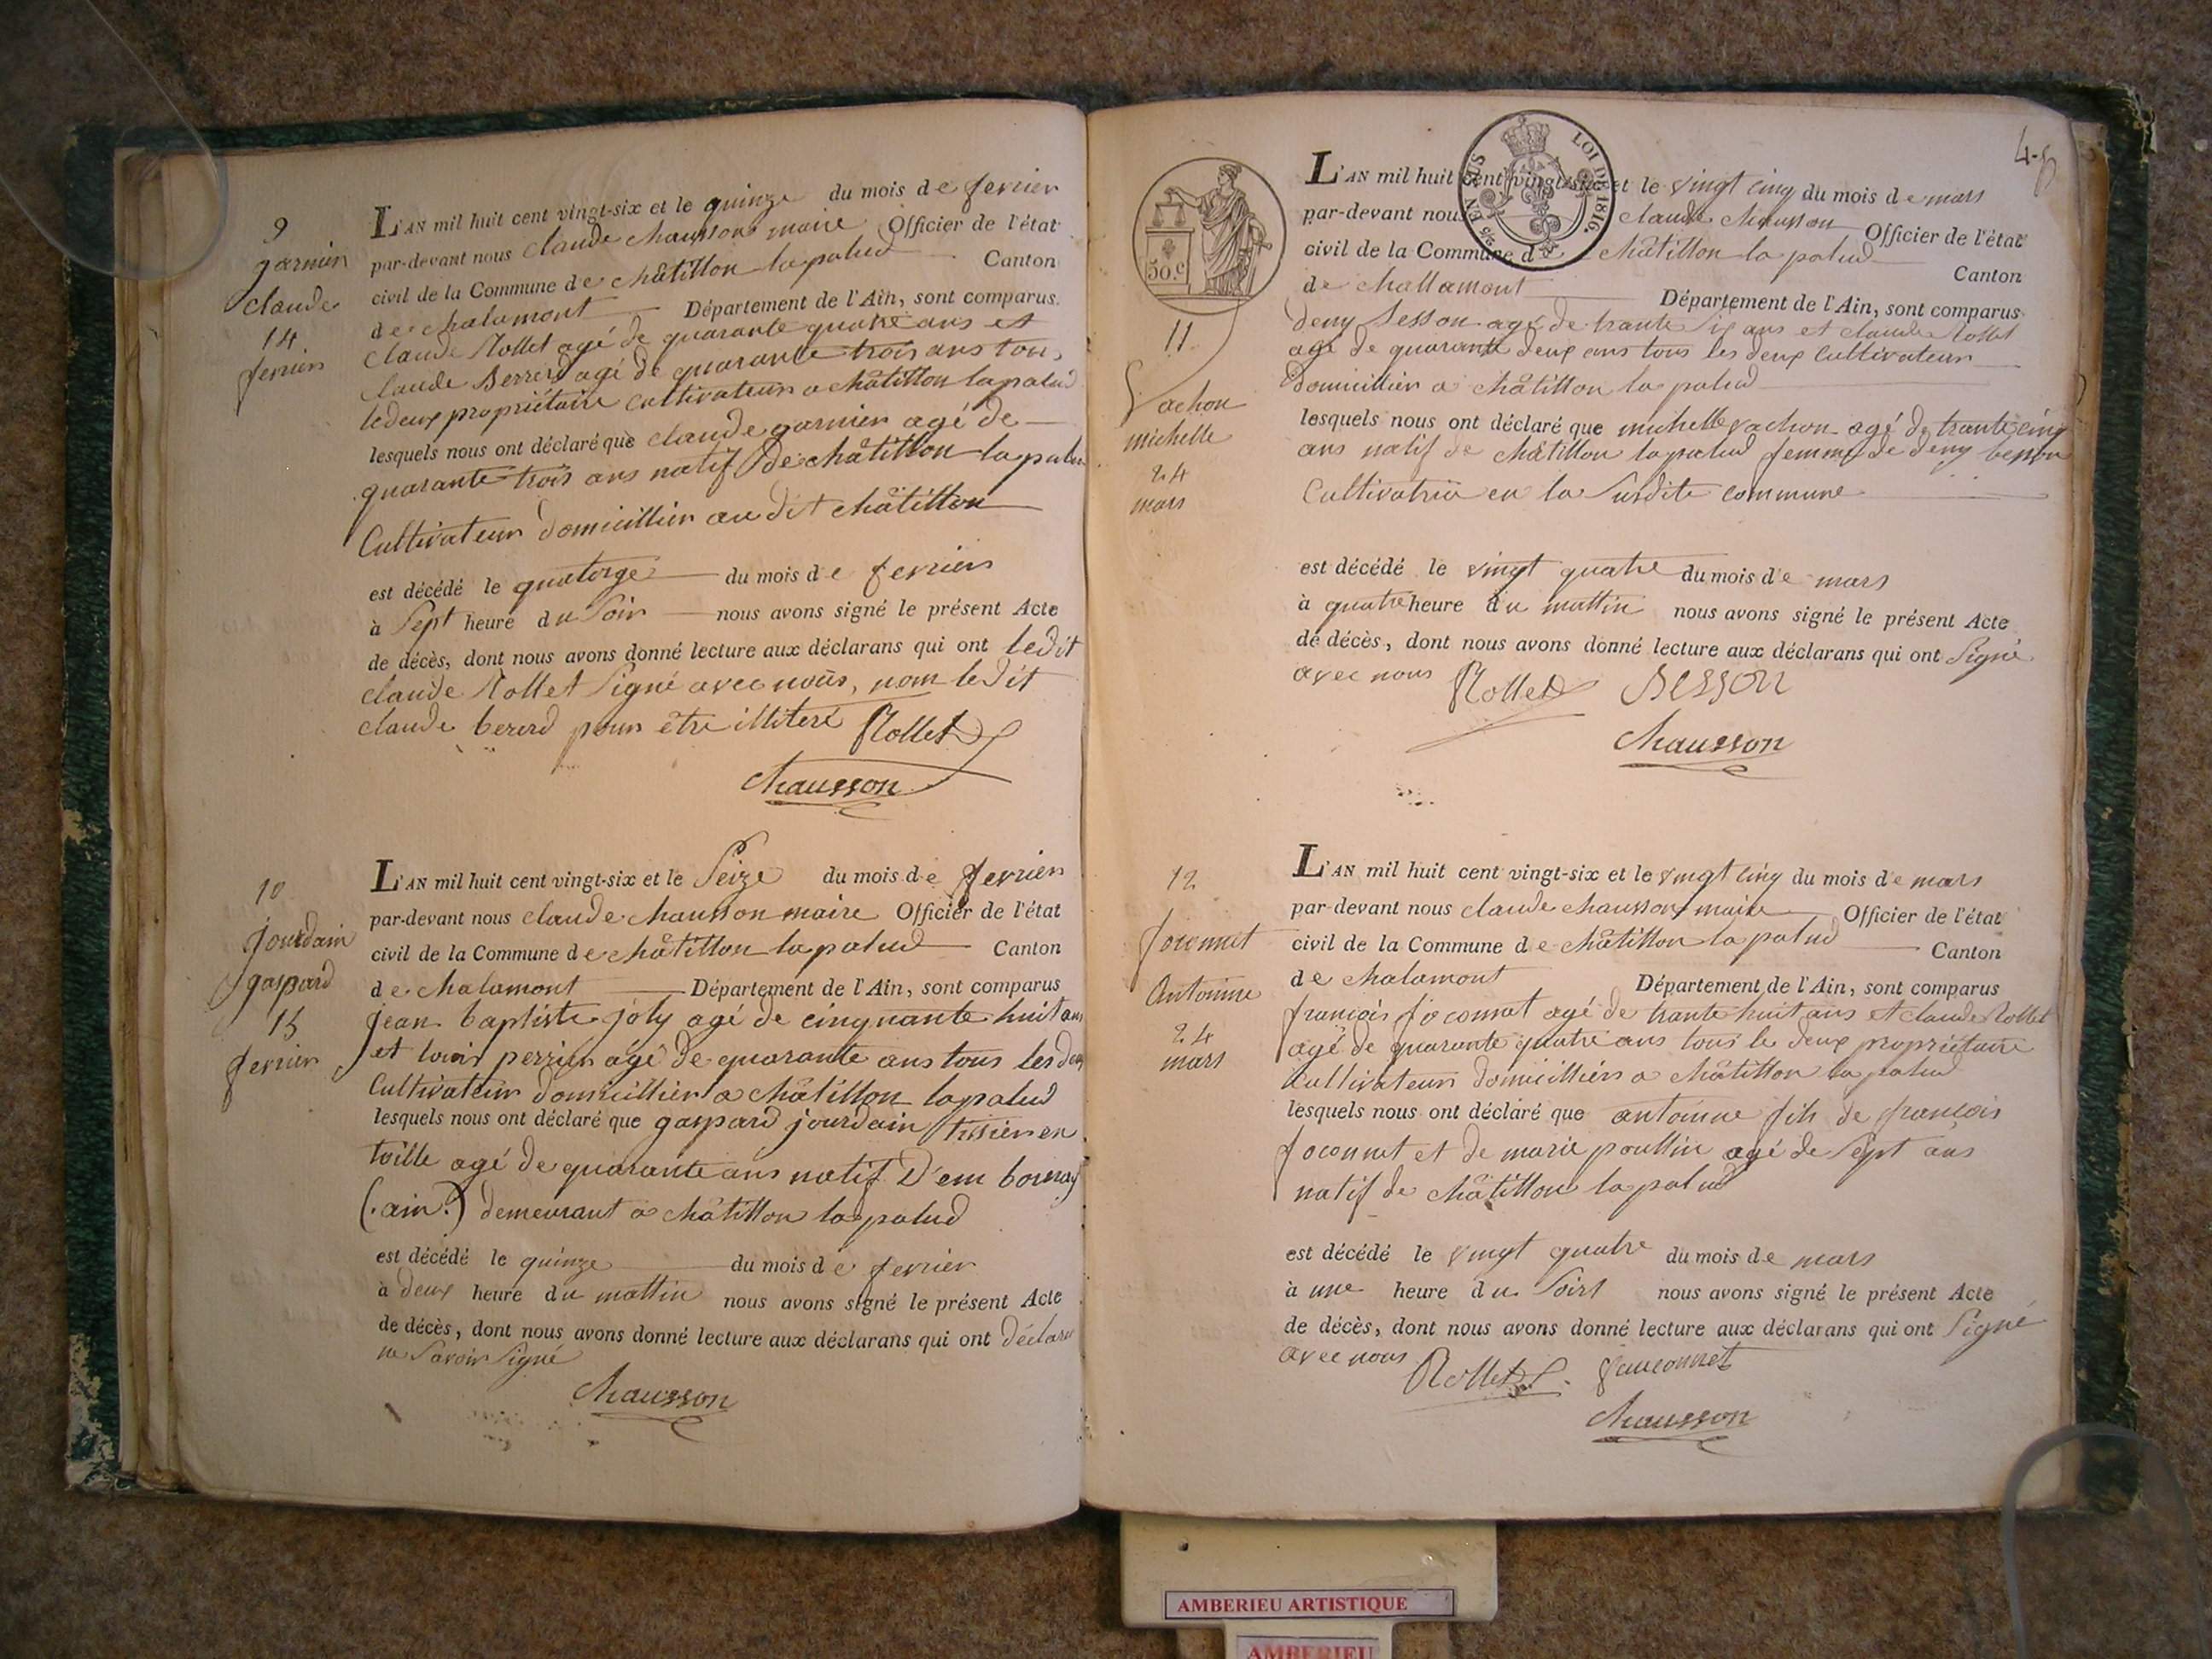 9
garnier
claude
14
fevrier
L'AN mil huit cent vingt-six et le quinze du mois de fevrier
par-devant nous claude chausson maire Officier de l'état
civil de la Commune de châtillon lapalud Canton
de chalamont Département de l'Ain, sont comparus
claude Rollet agé de quarante quatre ans et
claude Berrerd agé de quarante trois ans tou,
ledeux propriétaire cultivateur a châtillon lapalud
lesquels nous ont déclaré que claude garnier agé de
quarante trois ans natif de châtillon lapalud
Cultivateur domicillier au dit châtillon
est décédé le quatorze du mois de fevrier
à Sept heure du Soir nous avons signé le présent Acte
de décès, dont nous avons donné lecture aux déclarans qui ont ledit
claude Rollet Signé avec nous, nom le dit
claude bererd pour être illiteré Rollet
chausson
10
jourdain
gaspard
15
fevrier
L'AN mil huit cent vingt-six et le Seize du mois de fevrier
par-devant nous claude chausson maire Officier de l'état
civil de la Commune de châtillon lapalud Canton
de chalamont Département de l'Ain, sont comparus
jean baptiste joly agé de cinquante huit ans
et louis perrier agé de quarante ans tous les deux
Cultivateur domicillier a châtillon lapalud
lesquels nous ont déclaré que gaspard jourdain tissier en
toille agé de quarante ans natif D'em bournay
(.ain.) demeurant a châtillon lapalud
est décédé le quinze du mois de fevrier
à deux heure du mattin nous avons signé le présent Acte
de décès, dont nous avons donné lecture aux déclarans qui ont déclare
ne Savoir Signé
chausson
EN SUS
LOI DE 1816
50.c
11
Vachon
michelle
24
mars
L'AN mil huit cent vingt-six et le vingt cinq du mois de mars
par-devant nous claude chausson Officier de l'état
civil de la Commune de châtillon la palud Canton
de challamont Département de l'Ain, sont comparus
deny Besson agé de trante Six ans et claude Rollet
agé de quarante deux ans tous les deux Cultivateur
domicillier a châtillon la palud
lesquels nous ont déclaré que michelle vachon agé de trante cinq
ans natif de châtillon lapalud femme de deny besson
Cultivatrice en la Surdite commune
est décédé le vingt quatre du mois de mars
à quatre heure du mattin nous avons signé le présent Acte
de décès, dont nous avons donné lecture aux déclarans qui ont Signé
avec nous Rollet BESSON
chausson
12
foconnet
Antoinne
24
mars
L'AN mil huit cent vingt-six et le vingt cinq du mois de mars
par-devant nous claude chausson maire Officier de l'état
civil de la Commune de châtillon la palud Canton
de chalamont Département de l'Ain, sont comparus
françois foconnet agé de trante huit ans et claude Rollet
agé de quarante quatre ans tous les deux propriétaire
cultivateur domicilliers a châtillon la palud
lesquels nous ont déclaré que antoinne fils de françois
foconnet et de marie poullin agé de Sept ans
natif de châtillon la palud
est décédé le vingt quatre du mois de mars
à une heure du Soirs nous avons signé le présent Acte
de décès, dont nous avons donné lecture aux déclarans qui ont Signé
avec nous Rollet fauconnet
chausson
AMBERIEU ARTISTIQUE
AMBERIEU